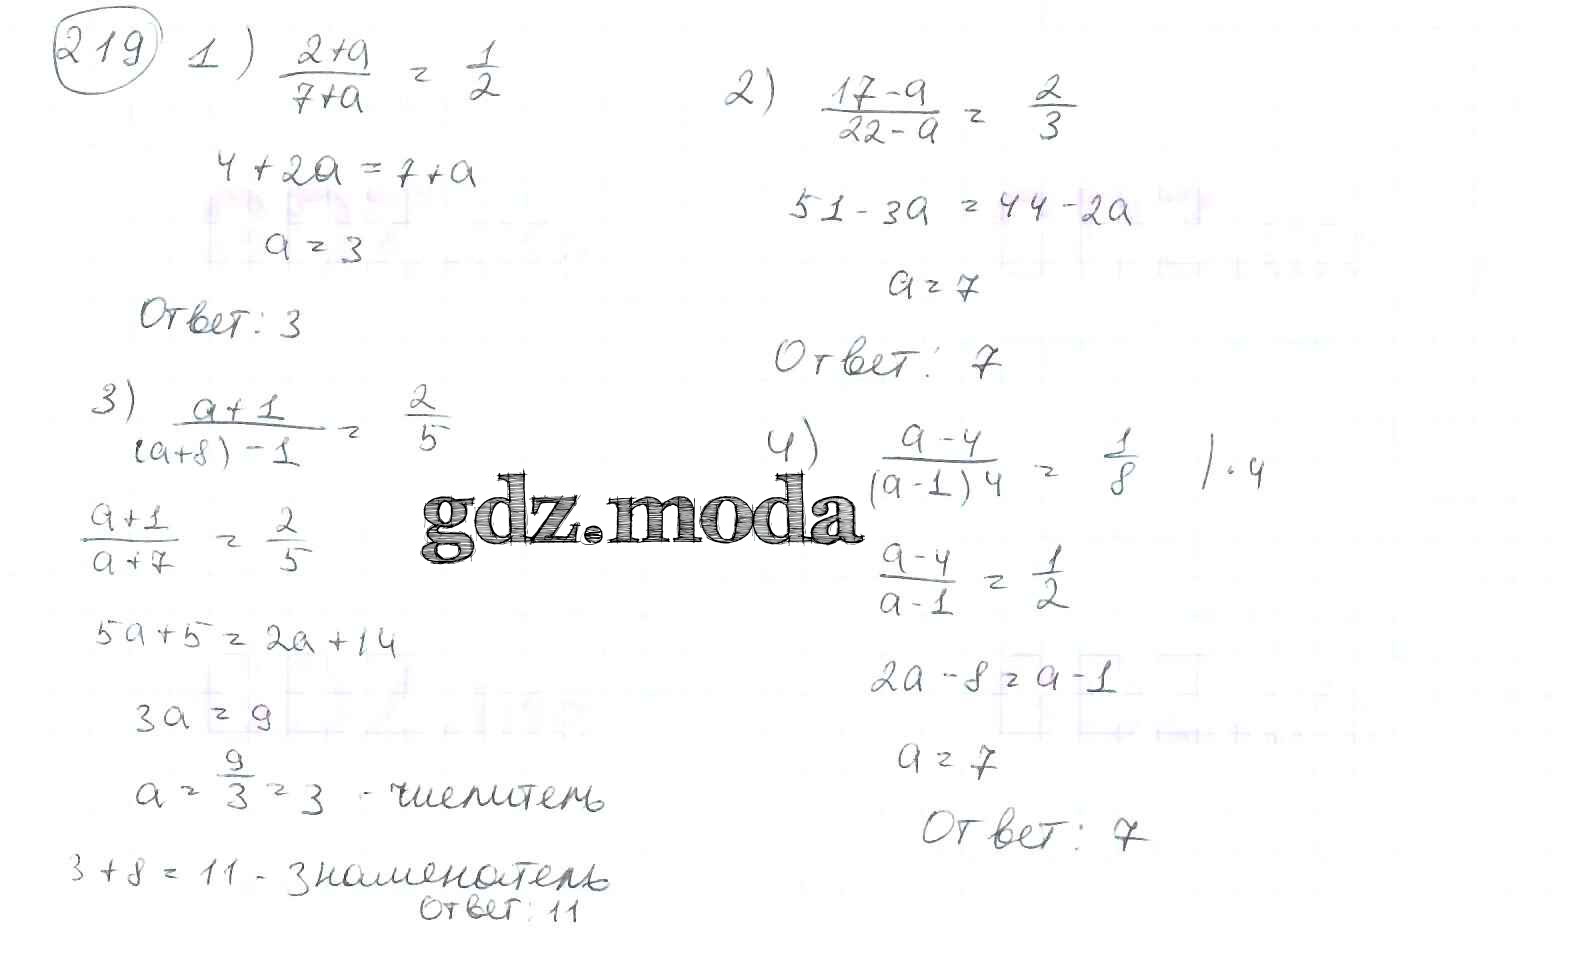 219 1) (2+a)/(7+a) = 1/2
4 + 2a = 7 + a
a = 3
Ответ: 3
2) (17-a)/(22-a) = 2/3
51 - 3a = 44 - 2a
a = 7
Ответ: 7
3) (a+1)/((a+8)-1) = 2/5
(a+1)/(a+7) = 2/5
5a + 5 = 2a + 14
3a = 9
a = 9/3 = 3 - числитель
3 + 8 = 11 - знаменатель
Ответ: 11
4) (a-4)/((a-1)4) = 1/8 | · 4
(a-4)/(a-1) = 1/2
2a - 8 = a - 1
a = 7
Ответ: 7
gdz.moda